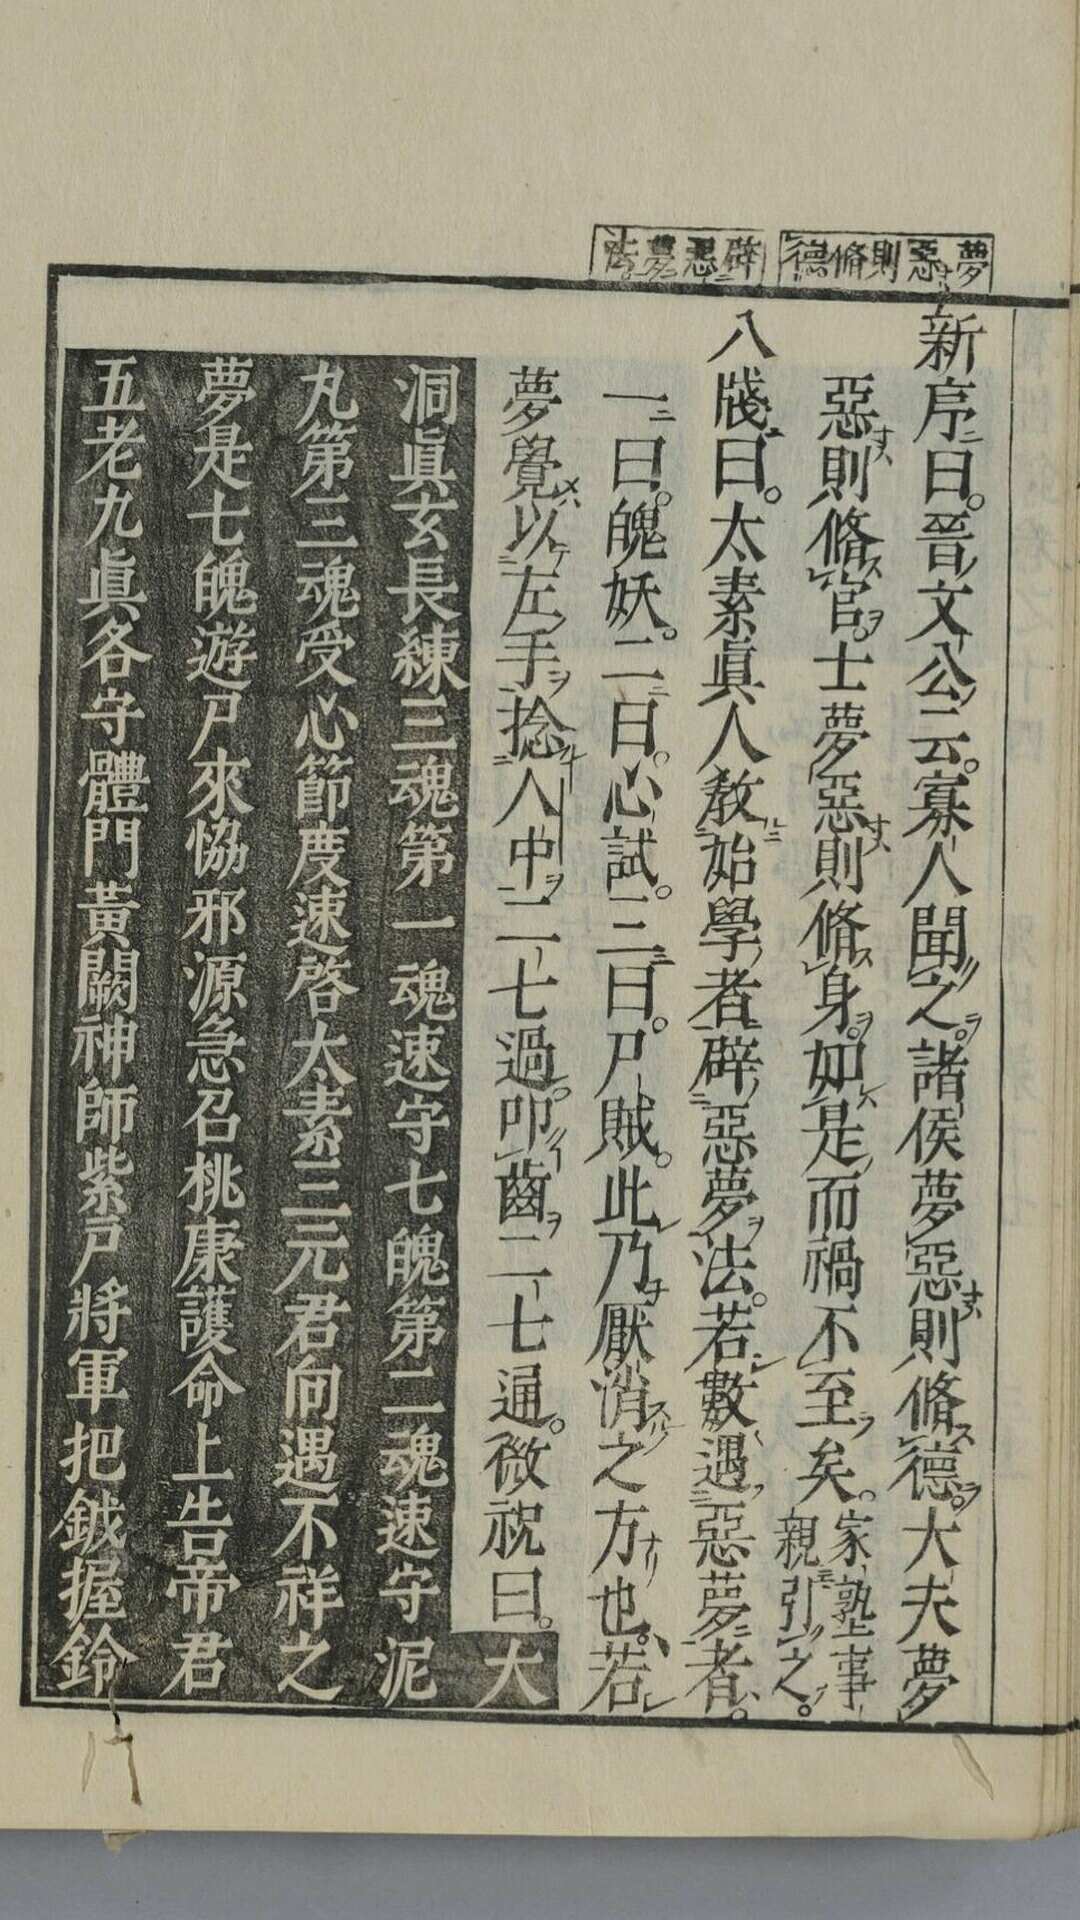 夢惡則脩德
辟惡夢法
新序曰。晉文公云。寡人聞之。諸侯夢惡則脩德。大夫夢
惡則脩官。士夢惡則脩身。如是而禍不至矣。家塾事親引之。
八牋曰。太素眞人敎始學者辟惡夢法。若數遇惡夢者。
一曰。魄妖。二曰。心試。三曰。尸賊。此乃厭消之方也。若
夢覺以左手捻人中二七過。叩齒二七通。微祝曰。大
洞眞玄長練三魂第一魂速守七魄第二魂速守泥
丸第三魂受心節度速啓太素三元君向遇不祥之
夢是七魄遊尸來恊邪源急召桃康護命上告帝君
五老九眞各守體門黃闕神師紫戸將軍把鉞握鈴